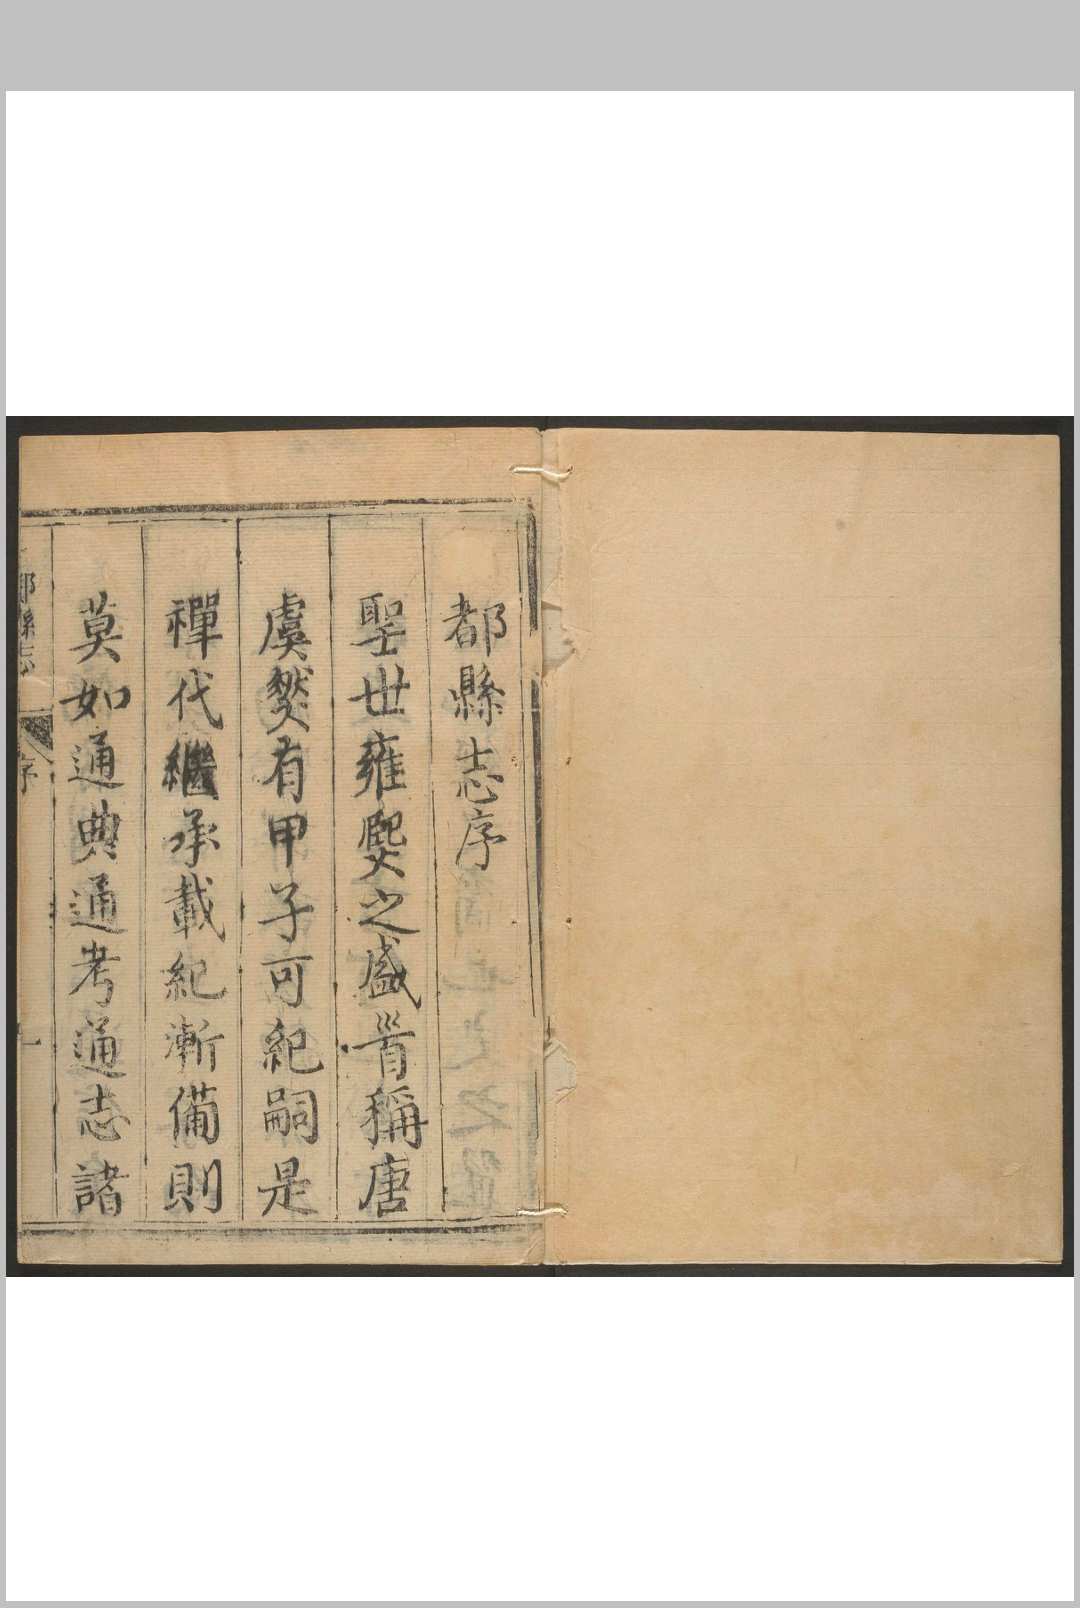 都縣志序
聖世雍熙之盛首稱唐
虞然有甲子可紀嗣是
禪代繼承載紀漸備則
莫如通典通考通志諸
都縣志
序
一